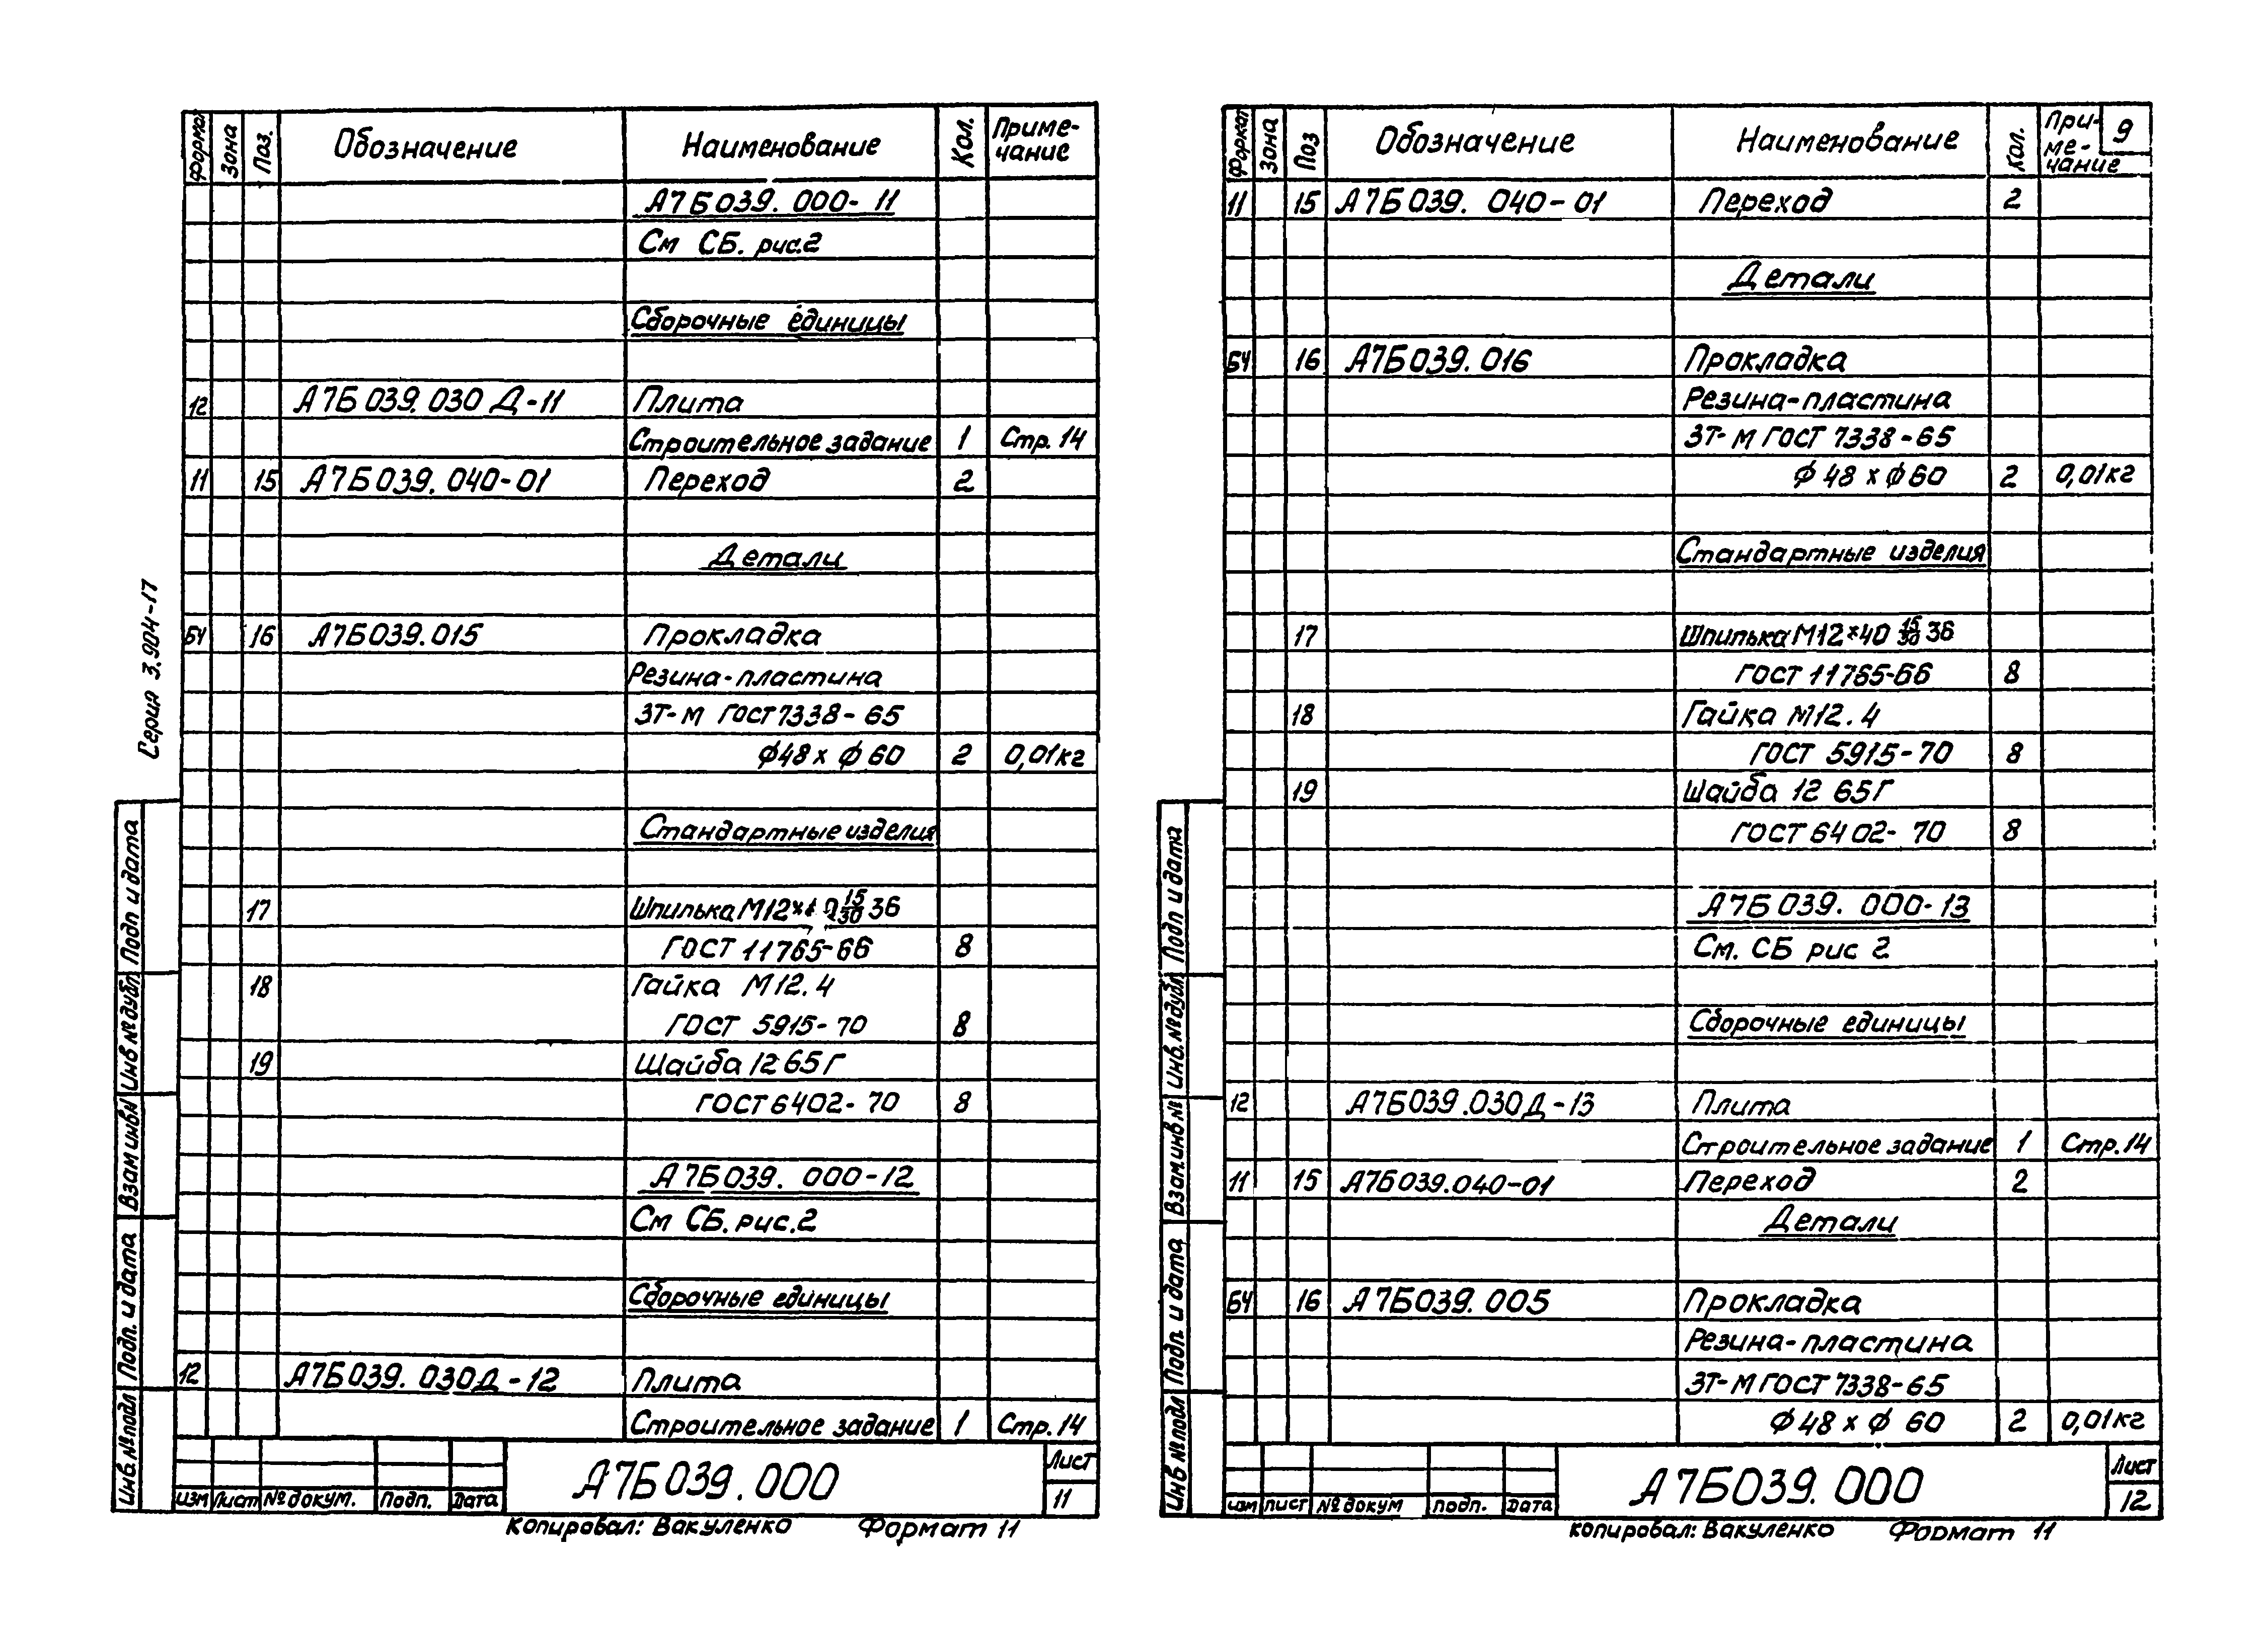 Формат Зона Поз. Обозначение Наименование Кол. Приме-чание
А7Б039.000-11
См СБ. рис.2
Сборочные единицы
12 А7Б039.030 Д-11 Плита
Строительное задание 1 Стр. 14
11 15 А7Б039.040-01 Переход 2
Детали
БЧ 16 А7Б039.015 Прокладка
Резина-пластина
3Т-М ГОСТ 7338-65
ф48 х ф 60 2 0,01кг
Стандартные изделия
17 Шпилька М12× 15/30 36
ГОСТ 11765-66 8
18 Гайка М12.4
ГОСТ 5915-70 8
19 Шайба 12 65Г
ГОСТ 6402-70 8
А7Б039.000-12
См СБ. рис.2
Сборочные единицы
12 А7Б039.030Д-12 Плита
Строительное задание 1 Стр.14
Серия 3.904-17
Подп и дата
Инв № дубл
Взам инв №
Подп. и дата
Инв № подл
Изм Лист № докум. Подп. Дата
А7Б039.000
Лист
11
Копировал: Вакуленко Формат 11
Формат Зона Поз Обозначение Наименование Кол. При-ме-чание 9
11 15 А7Б039.040-01 Переход 2
Детали
БЧ 16 А7Б039.016 Прокладка
Резина-пластина
3Т-М ГОСТ 7338-65
ф 48 х ф 60 2 0,01кг
Стандартные изделия
17 Шпилька М12×40 15/30 36
ГОСТ 11765-66 8
18 Гайка М12.4
ГОСТ 5915-70 8
19 Шайба 12 65Г
ГОСТ 6402-70 8
А7Б039.000-13
См. СБ рис 2
Сборочные единицы
12 А7Б039.030Д-13 Плита
Строительное задание 1 Стр.14
11 15 А7Б039.040-01 Переход 2
Детали
БЧ 16 А7Б039.005 Прокладка
Резина-пластина
3Т-М ГОСТ 7338-65
ф 48 х ф 60 2 0,01кг
Подп и дата
Инв. № дубл
Взам инв №
Подп. и дата
Инв № подл
Изм Лист № докум Подп. Дата
А7Б039.000
Лист
12
Копировал: Вакуленко Формат 11